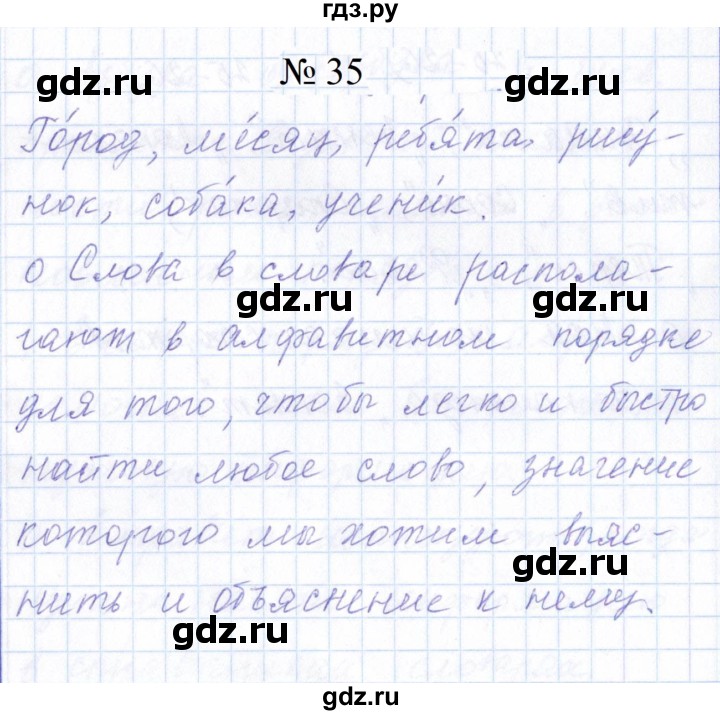 гдз.ру
gdz.ru gdz.ru
№ 35
Го́род, ме́сяц, ребя́та, рису́-
нок, соба́ка, учени́к.
о Слова в словаре распола-
gdz.ru gdz.ru
гают в алфавитном порядке
для того, чтобы легко и быстро
найти любое слово, значение
которого мы хотим выяс-
gdz.ru
нить и объяснение к нему.
gdz.ru
gdz.ru